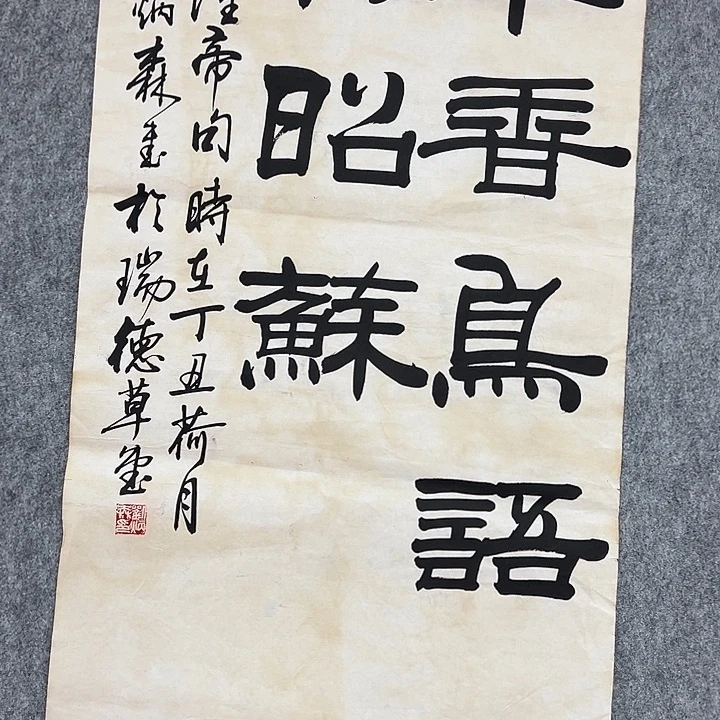 香鳥語
昭蘇
帝句時在丁丑荷月
炳森書於瑞德草堂